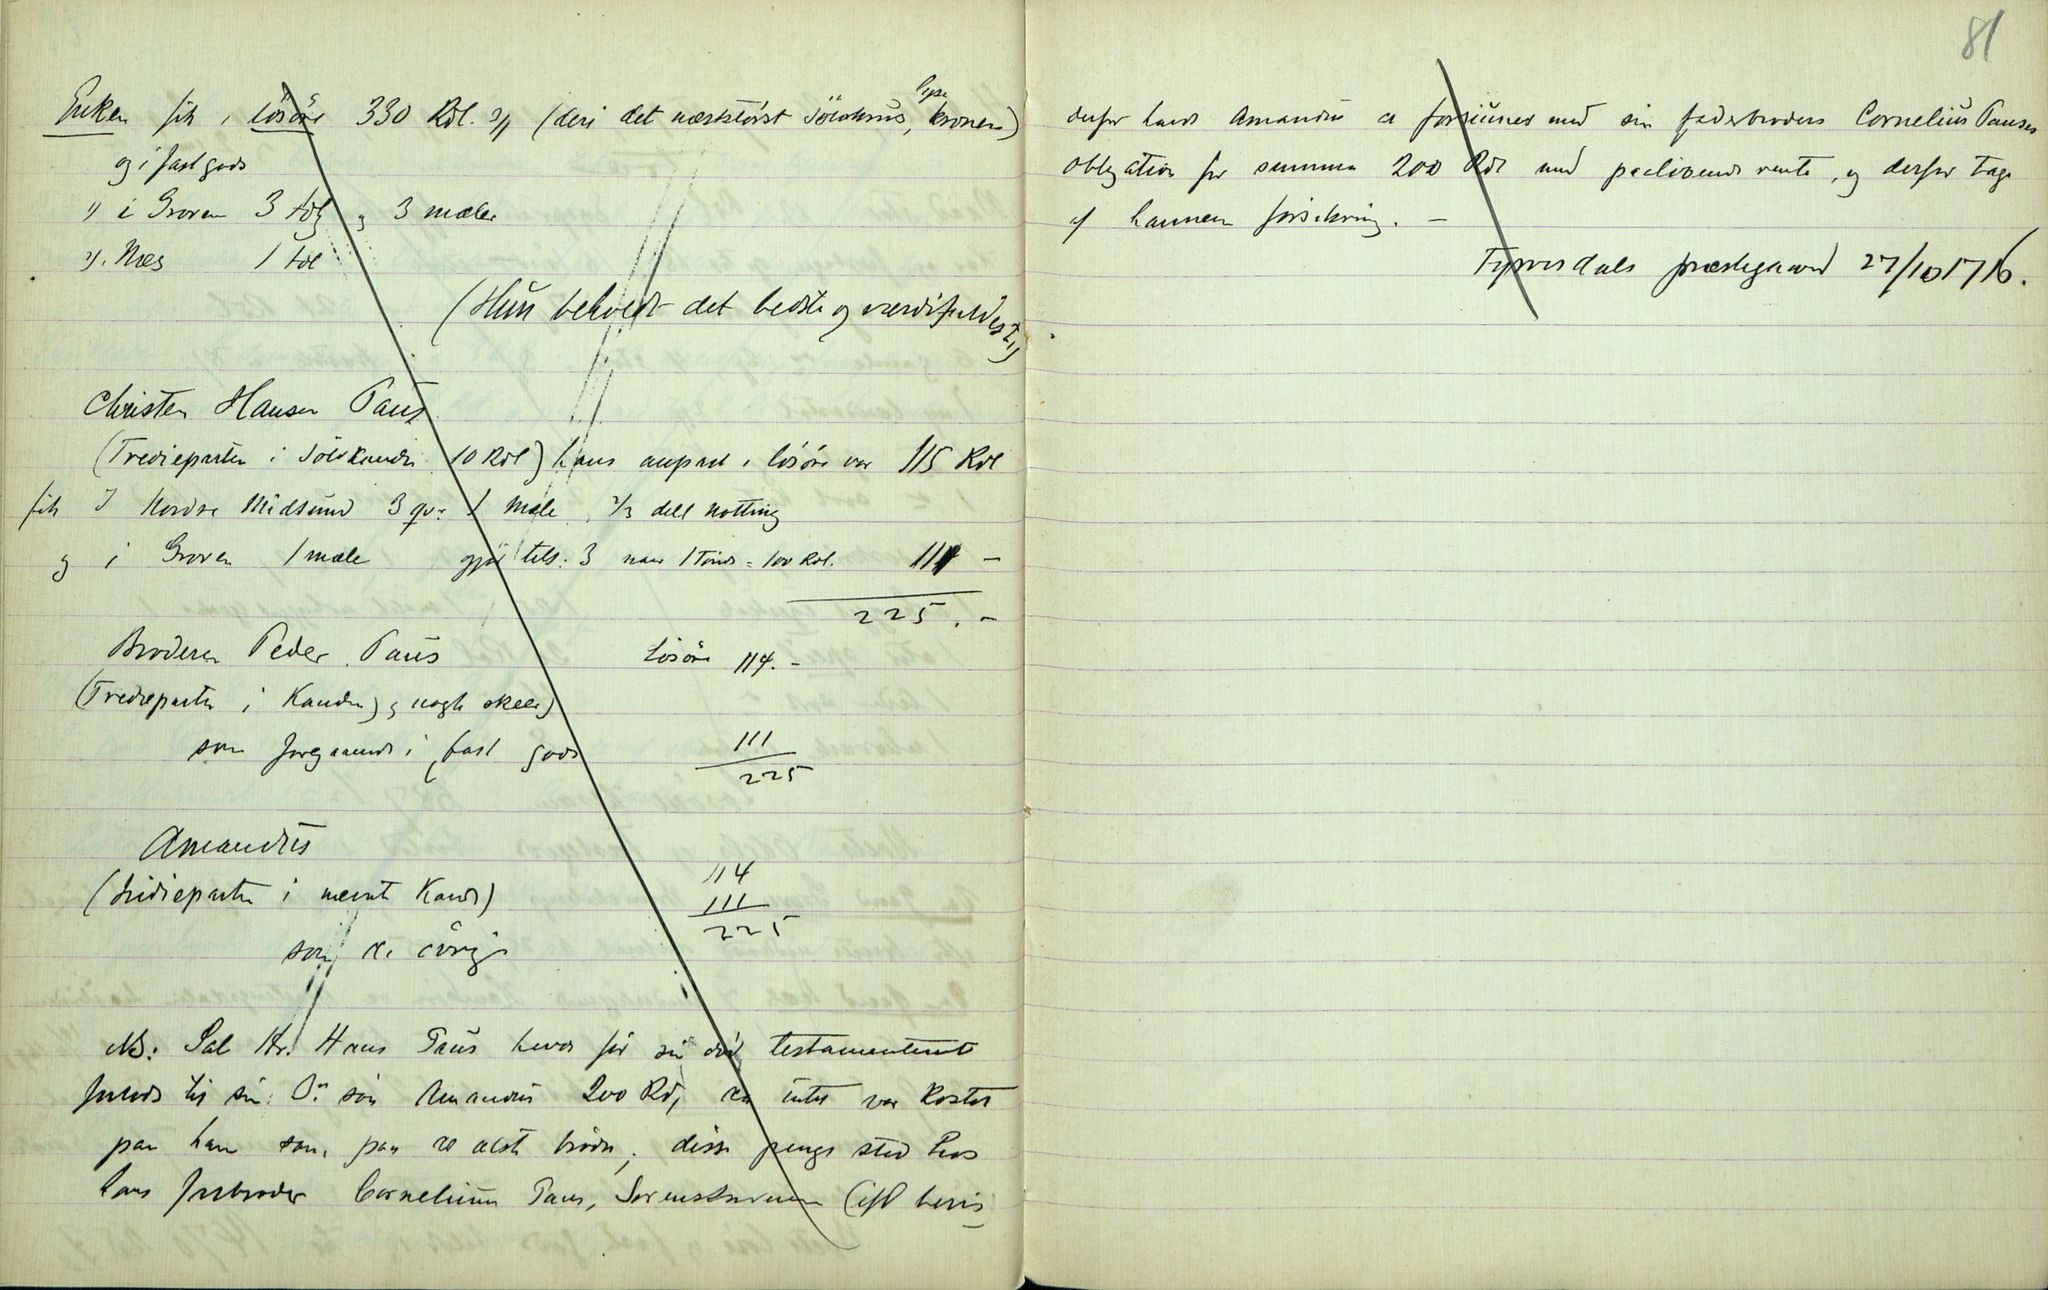 Enken fik i lösöre 330 Rdl. 2/ (deri det næststörst Sölvkrus, kronen)
og i fast gods
1) i Groven 3 tdl og 3 mæler
2). Næs 1 tdl
(Hun beholdt det bedste og værdifuldeste)
Christen Hansen Paus
(Tredieparten i Sölvkanden 10 Rdl) hans anpart i lösöre var 115 Rdl
fik I Nordre Midsund 3 qv: 1 Mæle 2/3 dell notting
og i Groven 1 mæle gjör tils: 3 naar 1 Tönde = 100 Rdl. 111 –
225. –
Broderen Peder Paus Lösöre 114. –
(Tredieparten i Kanden) og nogle skeer)
som foregaaende i fast gods 111
225
Amandus 114
(tredieparten i nævnte Kande) 111
som de övrige 225
NB: Sal Hr. Hans Paus hever för sin död testamenteret
til sin sön Amandus 200 Rd, da intet var kostet
paa ham som paa de ælste brödre, disse penge stod hos
hans farbroder Cornelium Paus, Sorenskriveren (ifl bevis
81
derfor hands Amandus at forsiunes med sin faderbroders Cornelius Pauses
obligation for summen 200 Rdl med paalöbende rente, og derfor tage
af hannem forsikring. –
Fyrresdals præstegaard 27/10 1716.